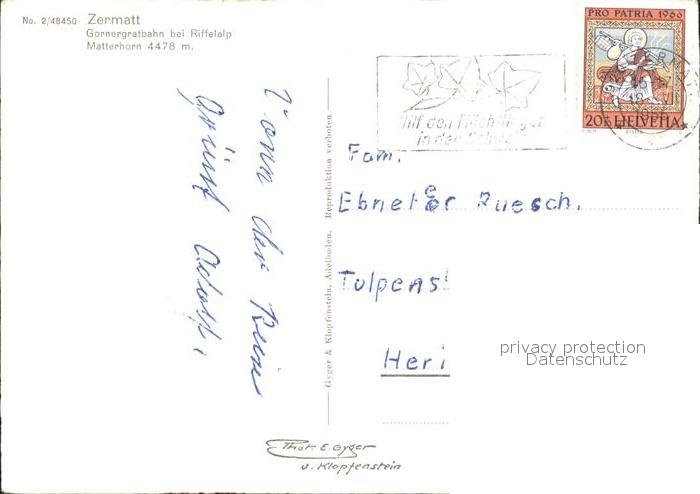 No. 2/48450 Zermatt
Gornergratbahn bei Riffelalp
Matterhorn 4478 m.
PRO PATRIA 1966
20 HELVETIA
Hilf den Flüchtlingen
in der Schweiz
Vonn der Reise
grüsst Adolf.
Gyger & Klopfenstein, Adelboden. Reproduktion verboten
Fam.
Ebneter Ruesch.
Tulpens
Heri
privacy protection
Datenschutz
Phot. E. Gyger
u. Klopfenstein